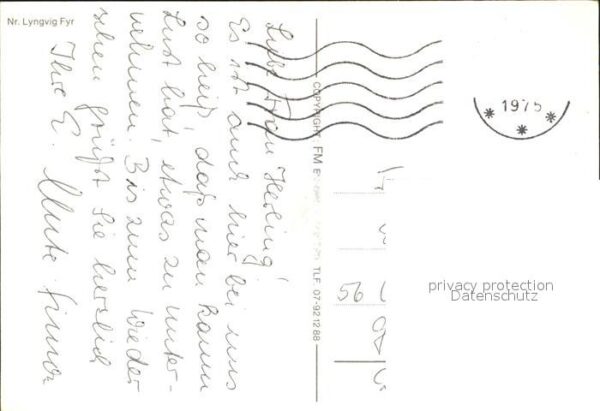 Nr. Lyngvig Fyr
Liebe Frau Hering!
Es ist auch hier bei uns
so heiß, daß man kaum
Lust hat, etwas zu unter-
nehmen. Bis zum Wieder
sehen grüßt Sie herzlich
Ihre E.
COPYRIGHT FM
TLF 07-921288
1975
56
privacy protection
Datenschutz